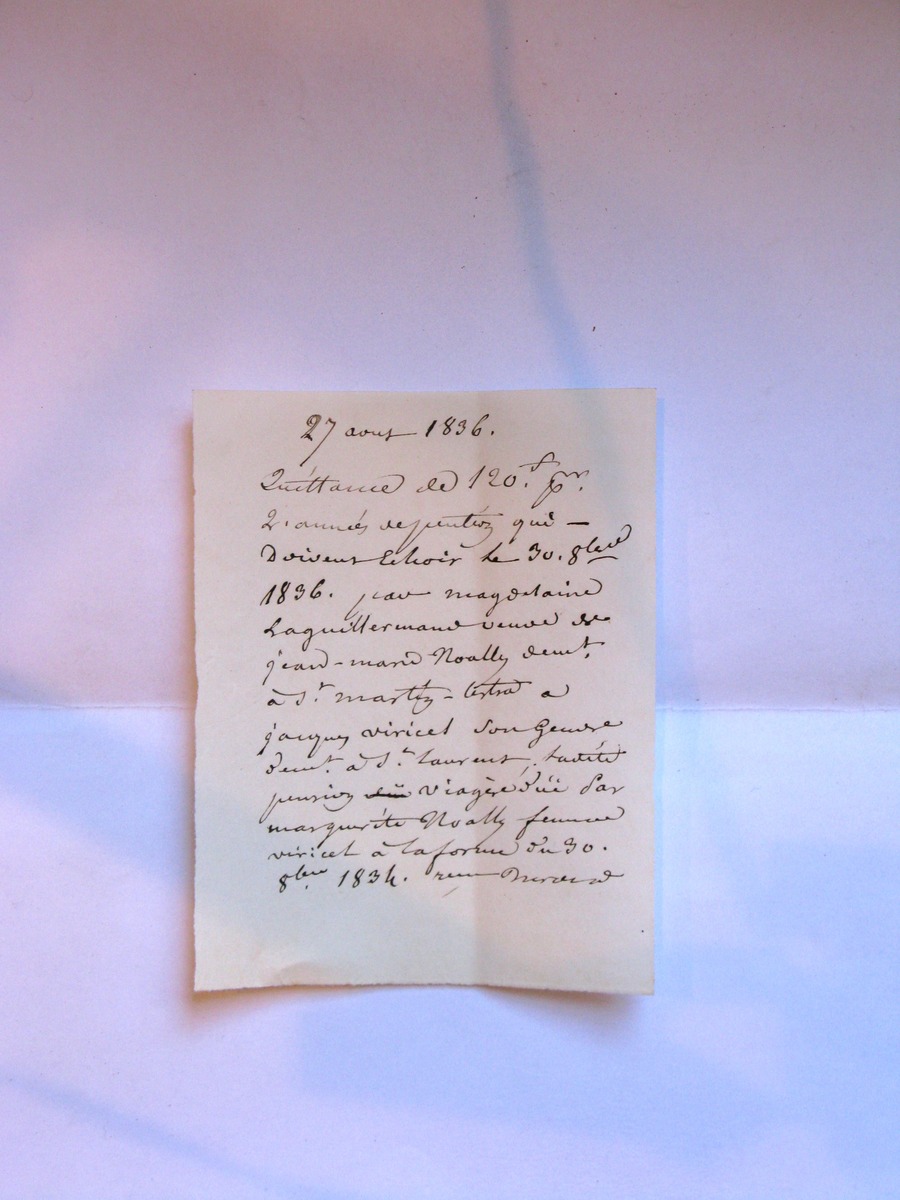 27 aout 1836.
Quittance de 120.f pr.
2. années de pention qui -
Doivent Echoir le 30. 8bre
1836. par magdelaine
Laguillermand veuve de
jean-marie Noally demt.
à St. martin-lestra a
jacques viricel son Gendre
demt. à St. laurent. ladite
pension viagère düe Par
marguérite Noally femme
viricel à la forme du 30.
8bre 1834.